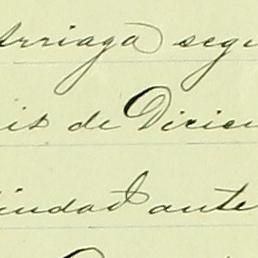 Arriaga segu
is de Diciem
iudad ante